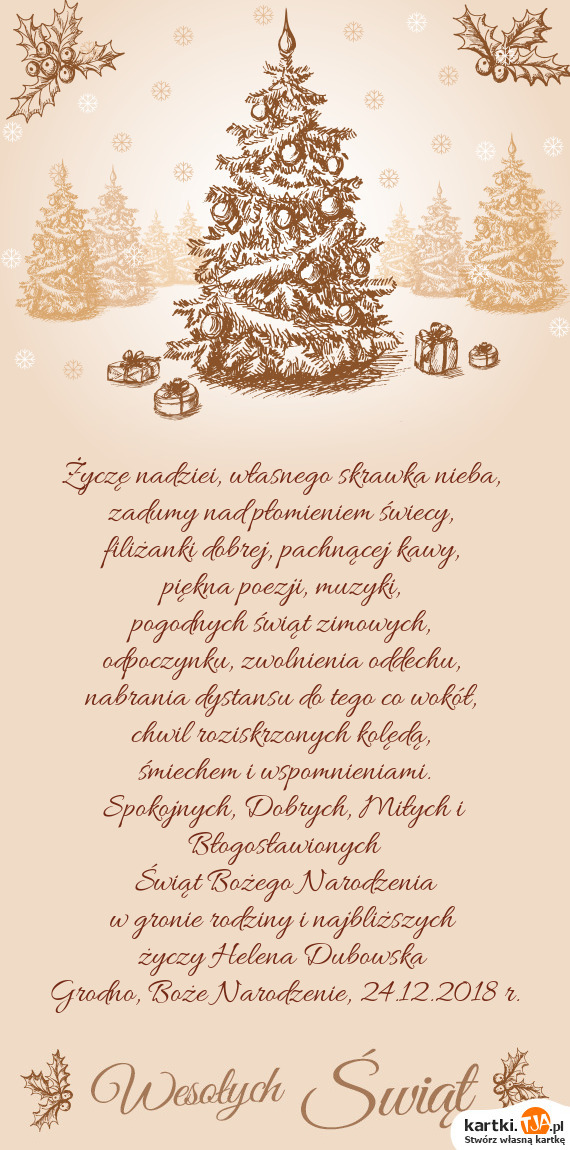 Życzę nadziei, własnego skrawka nieba,
zadumy nad płomieniem świecy,
filiżanki dobrej, pachnącej kawy,
piękna poezji, muzyki,
pogodnych świąt zimowych,
odpoczynku, zwolnienia oddechu,
nabrania dystansu do tego co wokół,
chwil roziskrzonych kolędą,
śmiechem i wspomnieniami.
Spokojnych, Dobrych, Miłych i
Błogosławionych
Świąt Bożego Narodzenia
w gronie rodziny i najbliższych
życzy Helena Dubowska
Grodno, Boże Narodzenie, 24.12.2018 r.
Wesołych Świąt
kartki.TJA.pl
Stwórz własną kartkę